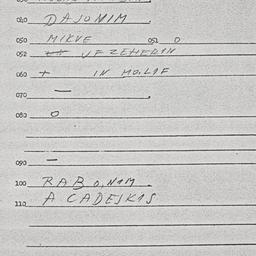 040 DAJONIM
050 MIKVE 051 0
052 UFZEHERIN
060 + IN MO.LIF
070 —
080 0
090 —
100 RAB O,NIM
110 A CADEJKIS